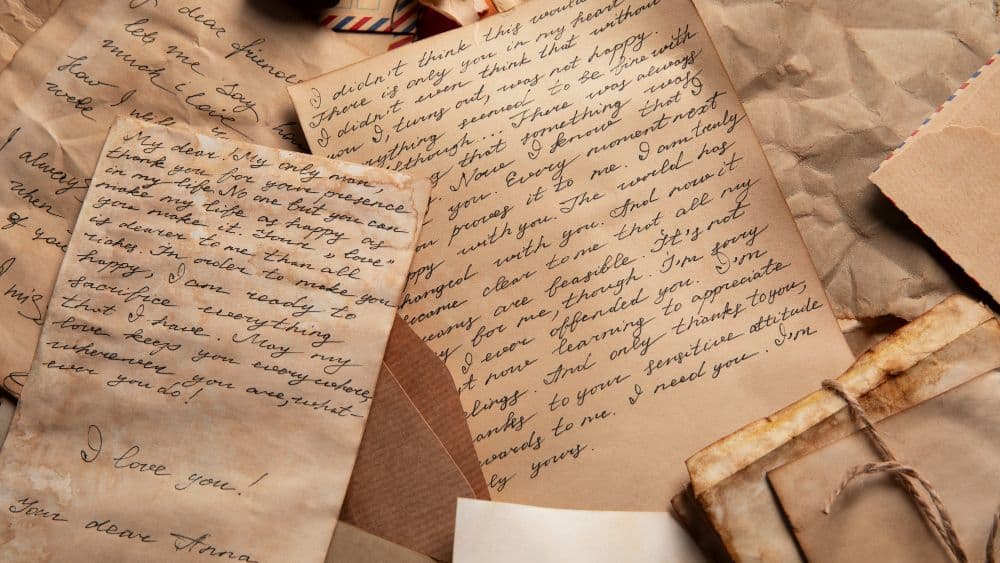 dear friend
let me say
much i love
How I
I always
When
of you
I
My dear! My only man,
thank you for your presence
in my life. No one but you can
make my life as happy as
you make it. Your „love"
is dearer to me than all
riches. In order to make you
happy, I am ready to
sacrifice everything
that I have. May my
love keeps you everywhere,
wherever you are, what-
ever you do!
I love you!
Your dear Anna
I didn't think this would
There is only you in my heart
I didn't even think that without
you I, turns out, was not happy.
everything seemed to be fine with
although... There was always
that something was
Now I know that I
you. Every moment next
you proves it to me. I am truly
happy with you. The world has
changed with you. And now it
became clear to me that all my
dreams are feasible. It's not
for me, though. I'm sorry
I ever offended you. I'm
now learning to appreciate
feelings. And only thanks to you,
thanks to your sensitive attitude
towards to me. I need you. I'm
ly yours.